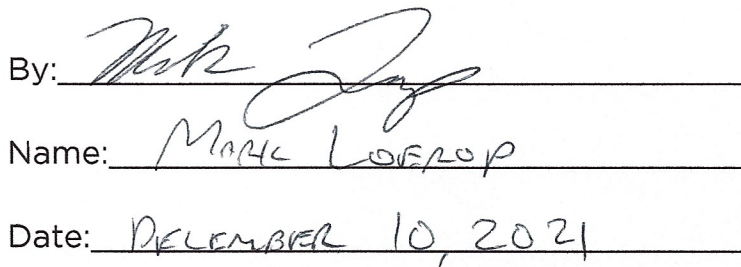 By:
Name: MARK LOEROP
Date: DECEMBER 10, 2021